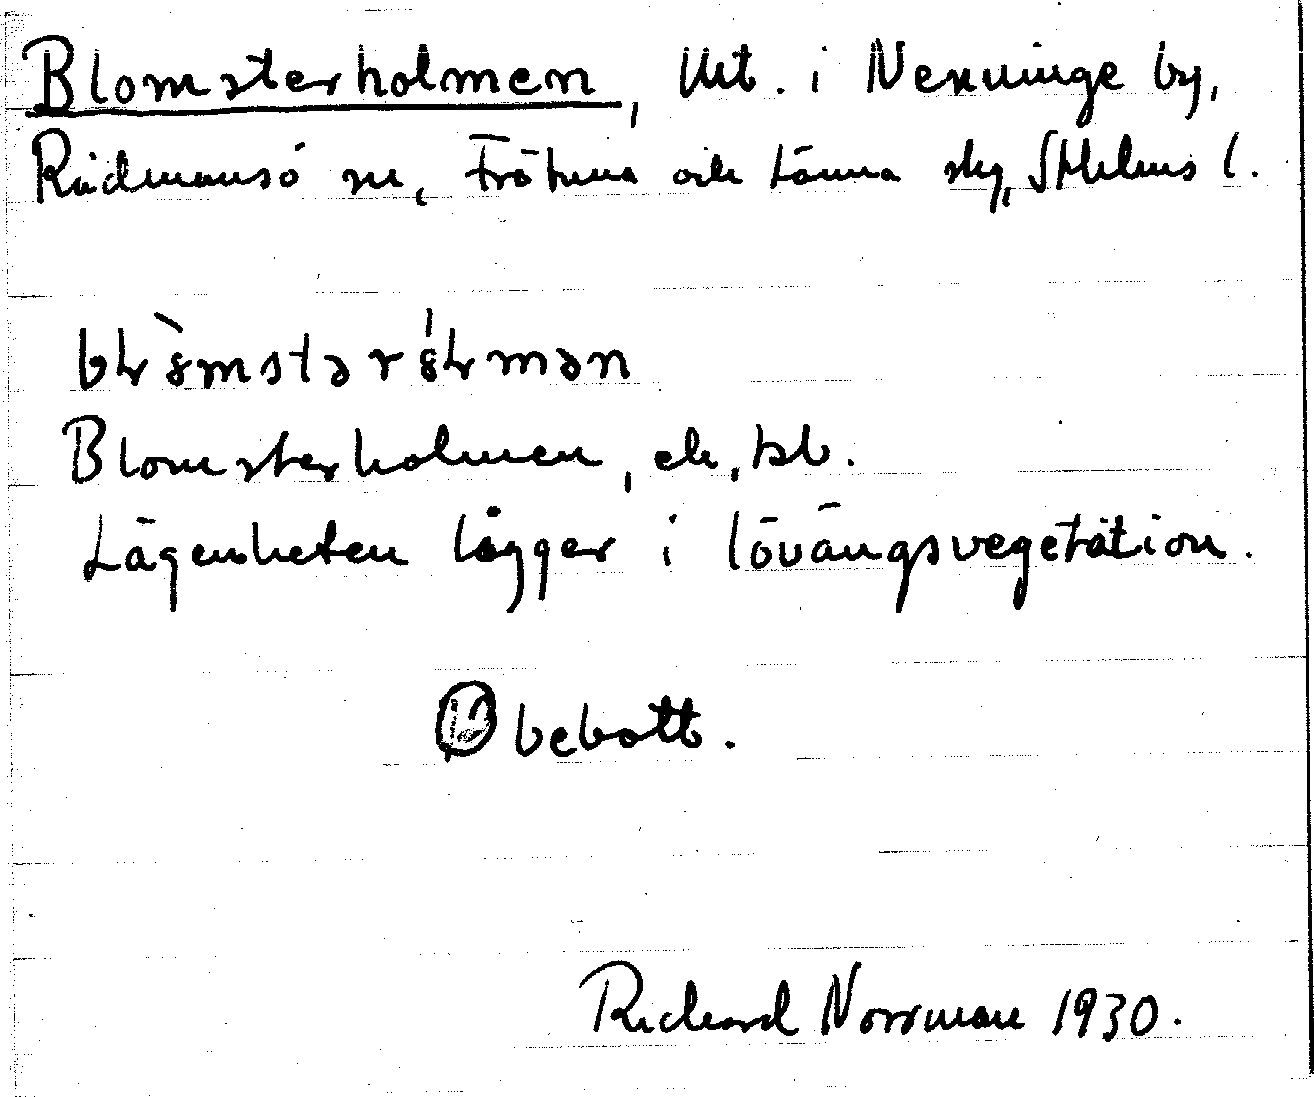 Blomsterholmen, lht. i Nenninge by,
Rådmansö sn, Frötuna och Länna sky, Sthlms l.
bɫ̀ɷmstərɷ́ɫmən
Blomsterholmen, ek, kb.
Lägenheten ligger i lövängsvegetation.
Obebott.
Richard Norrman 1930.